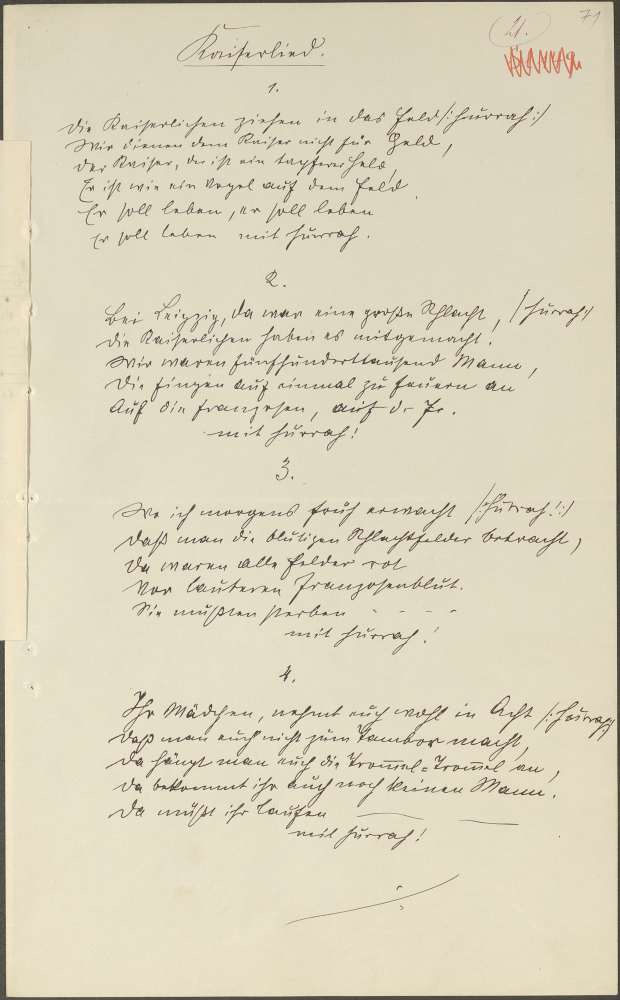 71
21.
Kaiserlied.
1.
Die Kaiserlichen ziehen in das Feld /: hurrah :/
Wir dienen dem Kaiser nicht für Geld,
Der Kaiser, der ist ein tapferer Held,
Er ist wie ein Vogel auf dem Feld
Er soll leben, er soll leben
Er soll leben mit hurrah.
2.
Bei Leipzig, da war eine große Schlacht, /: hurrah :/
Die Kaiserlichen haben es mitgemacht.
Wir waren fünfhunderttausend Mann,
Die fingen auf einmal zu feuern an
Auf die Franzosen, auf d- Fr.
mit hurrah!
3.
Wo ich morgens früh erwacht /: hurrah! :/
Daß man die blutigen Schlachtfelder betracht,
Da waren alle Felder rot
Von lauteren Franzosenblut.
Sie mußten sterben - - - -
mit hurrah!
4.
Ihr Mädchen, nehmt euch wohl in Acht /: hurrah :/
Daß man euch nicht zum Tambor macht,
Da hängt man euch die Trommel-Trommel an,
Da bekommt ihr auch noch keinen Mann.
Da müßt ihr laufen — —
mit hurrah!